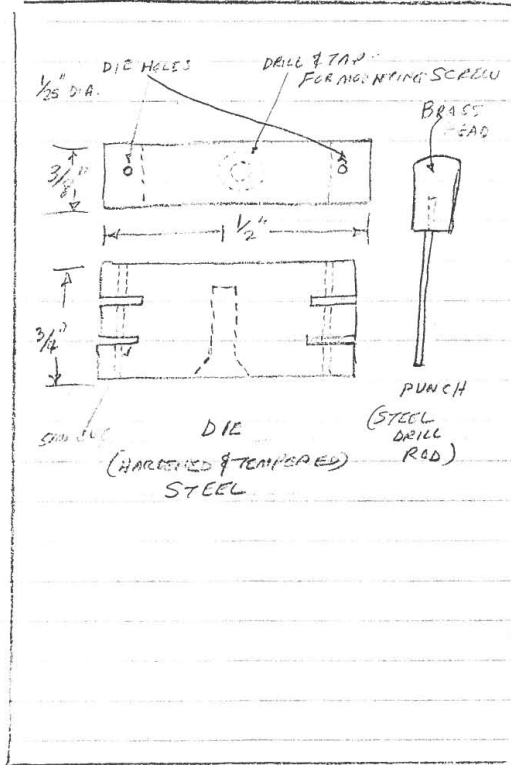 DIE HOLES
DRILL & TAP
FOR MOUNTING SCREW
DIA.
BRASS
HEAD
3/8"
1/2"
3/4"
SAW CUT
DIE
(HARDENED & TEMPERED)
STEEL
PUNCH
(STEEL
DRILL
ROD)